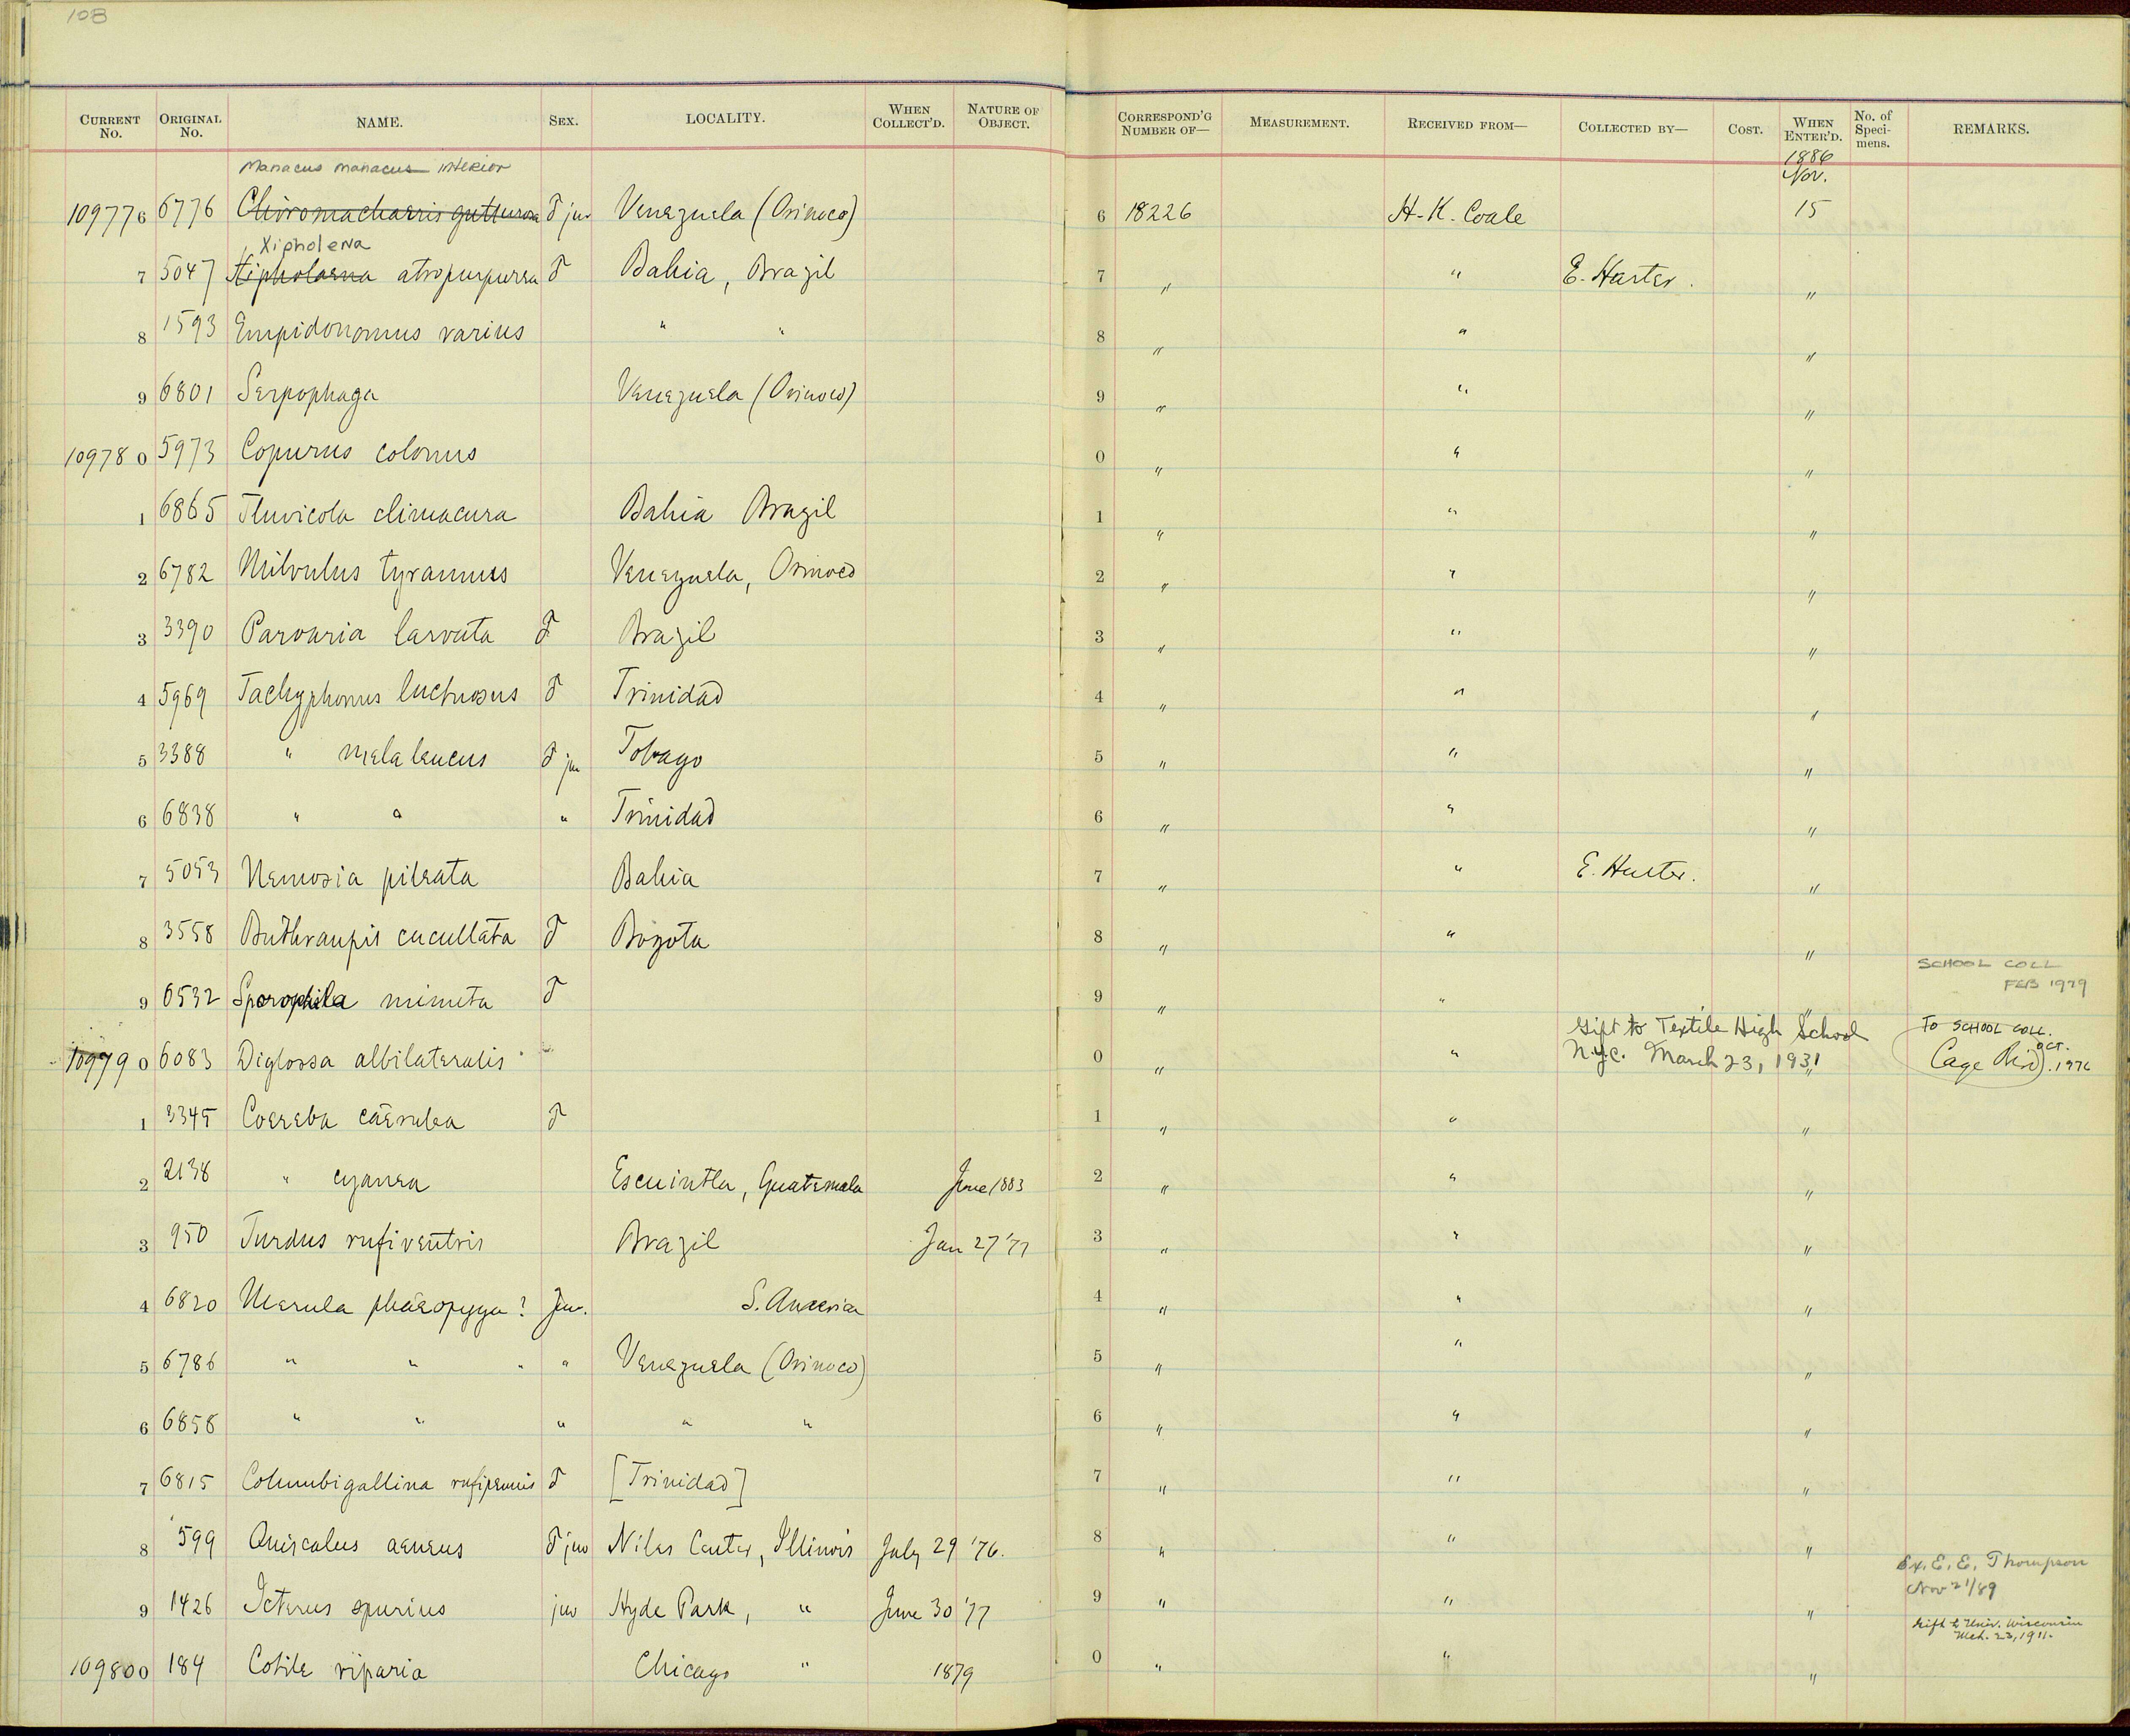 108
CURRENT No. ORIGINAL No. NAME. SEX. LOCALITY. WHEN COLLECT'D. NATURE OF OBJECT. CORRESPOND'G NUMBER OF— MEASUREMENT. RECEIVED FROM— COLLECTED BY— COST. WHEN ENTER'D. No. of Speci-mens. REMARKS.
Manacus manacus interior 1886 Nov.
109776 6776 Chiromachaeris gutturosa ♂ juv Venezuela (Orinoco) 6 18226 H-K. Coale 15
Xipholena
7 5047 Xipholaena atropurpurea ♂ Bahia, Brazil 7 " " E. Harter. "
8 1593 Empidonomus varius " " 8 " " "
9 6801 Serpophaga Venezuela (Orinoco) 9 " " "
109780 5973 Copurus colonus 0 " " "
1 6865 Fluvicola climacura Bahia Brazil 1 " " "
2 6782 Milvulus tyrannus Venezuela, Orinoco 2 " " "
3 3390 Paroaria larvata ♂ Brazil 3 " " "
4 5969 Tachyphonus luctuosus ♂ Trinidad 4 " " "
5 3388 " melaleucus ♂ juv Tobago 5 " " "
6 6838 " " " Trinidad 6 " " "
7 5053 Nemosia pileata Bahia 7 " " E. Harter. "
8 3558 Buthraupis cucullata ♂ Bogota 8 " " "
SCHOOL COLL FEB 1979
9 6532 Sporophila minuta ♂ 9 " " "
Gift to Textile High School TO SCHOOL COLL. OCT. 1976
109790 6083 Diglossa albilateralis 0 " " N.Y.C. March 23, 1931 " Cage Bird
1 3345 Coereba caerulea ♂ 1 " " "
2 2138 " cyanea Escuintla, Guatemala June 1883 2 " " "
3 950 Turdus rufiventris Brazil Jan 27 '77 3 " " "
4 6820 Merula phaeopyga? Juv. S. America 4 " " "
5 6786 " " " " Venezuela (Orinoco) 5 " " "
6 6858 " " " " " 6 " " "
7 6815 Columbigallina rufipennis ♂ [Trinidad] 7 " " "
8 599 Quiscalus aeneus ♂ juv Niles Center, Illinois July 29 '76. 8 " " "
Ex. E. E. Thompson
Nov 21/89
9 1426 Icterus spurius juv Hyde Park, " June 30 '77 9 " " "
Gift to Univ. Wisconsin
Mch. 23, 1911.
109800 184 Cotile riparia Chicago " 1879 0 " " "